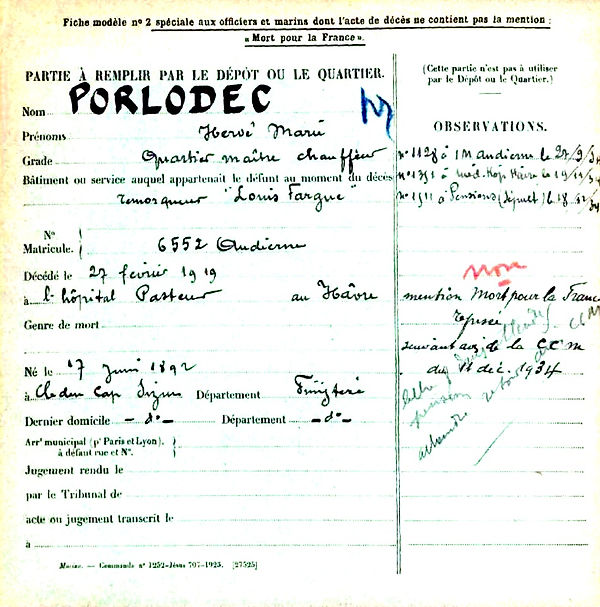 Fiche modèle n° 2 spéciale aux officiers et marins dont l'acte de décès ne contient pas la mention :
« Mort pour la France ».
PARTIE À REMPLIR PAR LE DÉPÔT OU LE QUARTIER.
Nom PORLODEC
Prénoms Hervé Marie
Grade Quartier maître chauffeur
Bâtiment ou service auquel appartenait le défunt au moment du décès
remorqueur "Louis Fargue"
N°
Matricule. 6552 Audierne
Décédé le 27 février 1919
à l'hôpital Pasteur au Hâvre
Genre de mort
Né le 17 Juin 1892
à Cleden Cap Sizun Département Finistère
Dernier domicile - d° - Département - d° -
Arrt municipal (pr Paris et Lyon).
à défaut rue et N°.
Jugement rendu le
par le Tribunal de
acte ou jugement transcrit le
à
Marine. — Commande n° 1252-Jésus 707-1925. [27525]
(Cette partie n'est pas à utiliser
par le Dépôt ou le Quartier.)
OBSERVATIONS.
n° 1128 à IM Audierne le 27/9/34
n° 1351 à Méd. Hop Havre le 19/11/34
n° 1511 à Pensions le 18/12/34
non
mention Mort pour la France
refusé
suivant avis de la CCM
du 11 déc. 1934
pension